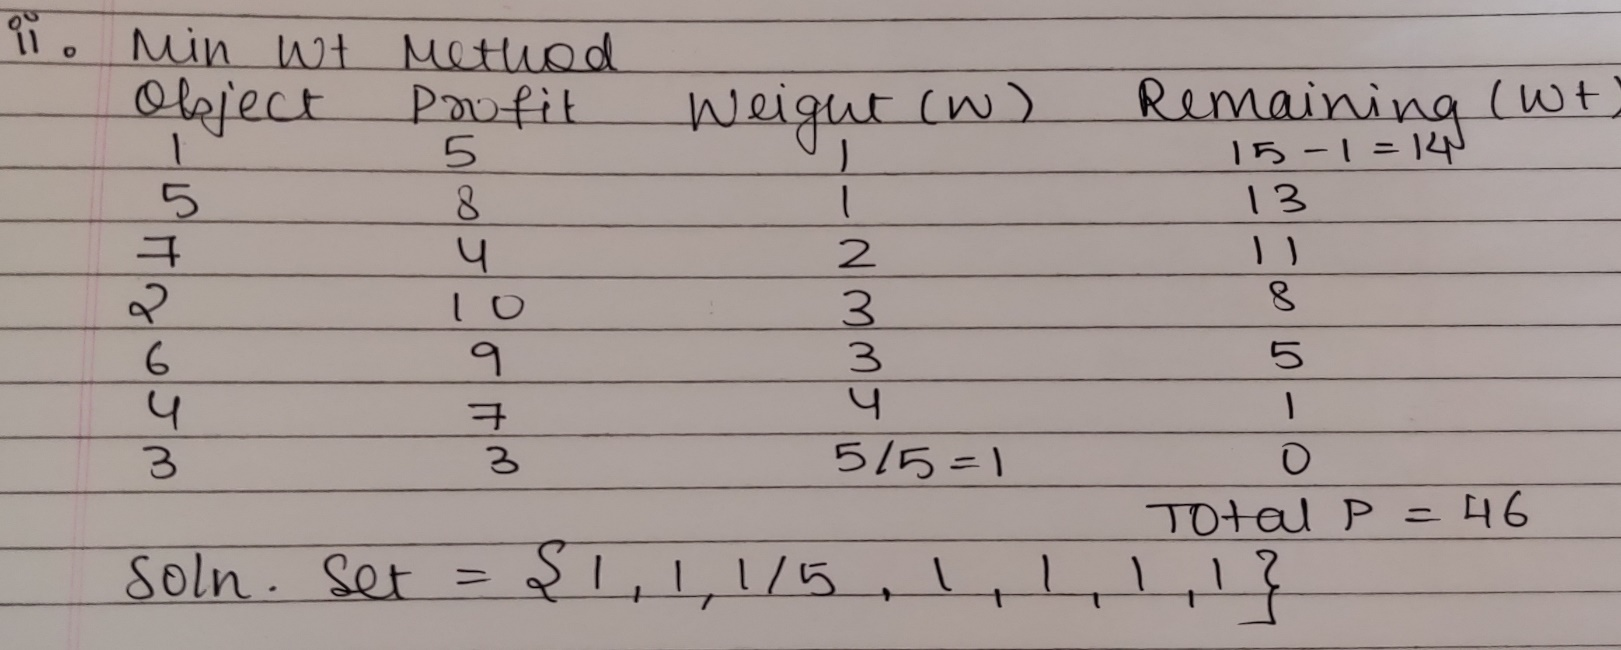 ii. Min Wt Method
Object Profit Weight (W) Remaining (Wt)
1 5 1 15 - 1 = 14
5 8 1 13
7 4 2 11
2 10 3 8
6 9 3 5
4 7 4 1
3 3 5/5 = 1 0
Total P = 46
Soln. Set = {1, 1, 1/5, 1, 1, 1, 1}